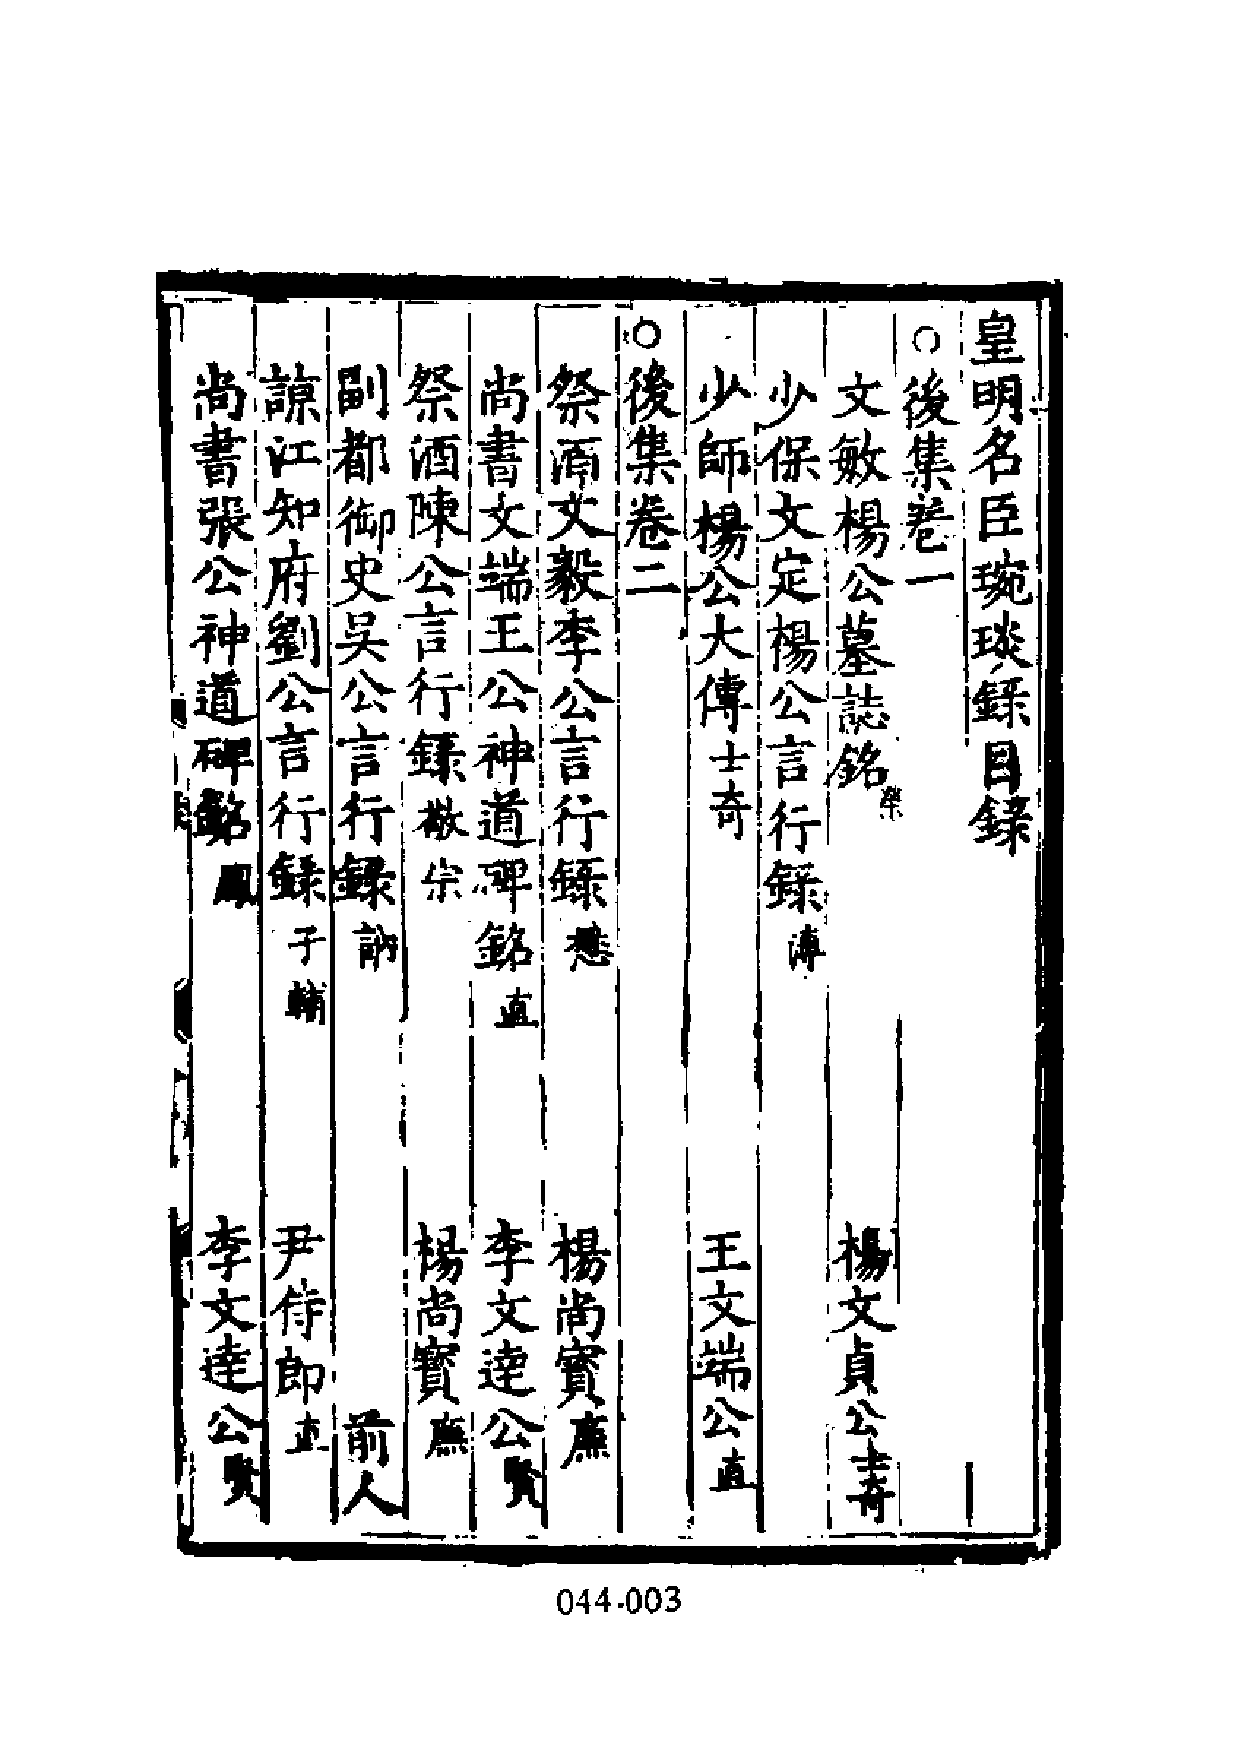 皇明名臣琬琰録目録
○後集卷一
文敏楊公墓誌銘榮 楊文貞公士奇
少保文定楊公言行録溥
少師楊公大傳士奇 王文端公直
○後集卷二
祭酒文毅李公言行録懋 楊尚寶廉
尚書文端王公神道碑銘直 李文達公賢
祭酒陳公言行録敬宗 楊尚寶廉
副都御史吳公言行録訥 前人
諒江知府劉公言行録子輔 尹侍郎直
尚書張公神道碑銘鳳 李文達公賢
044-003